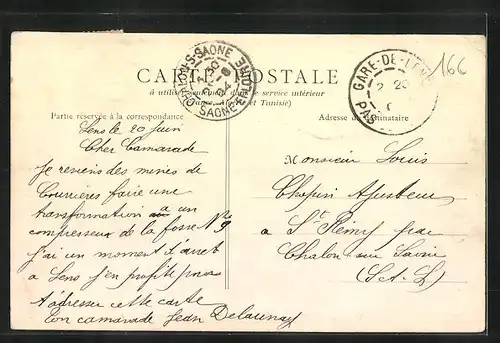 166
CHALON-S-SAONE
SAONE-ET-LOIRE
GARE-DE-LENS
PAS
2 20
CARTE POSTALE
à utiliser dans le service intérieur
et Tunisie)
Partie réservée à la correspondance
Adresse du destinataire
Lens le 20 juin
Cher Camarade
Je reviens des mines de
Courrières faire une
transformation a un
compresseur de la fosse N° 9
j'ai un moment d'arret
a Lens j'en profite pour
t'adresser cette carte
Ton camarade Jean Delaunay
Monsieur Louis
Chapuis Ajusteur
a St Rémy par
Chalon sur Saône
(S.et.L)